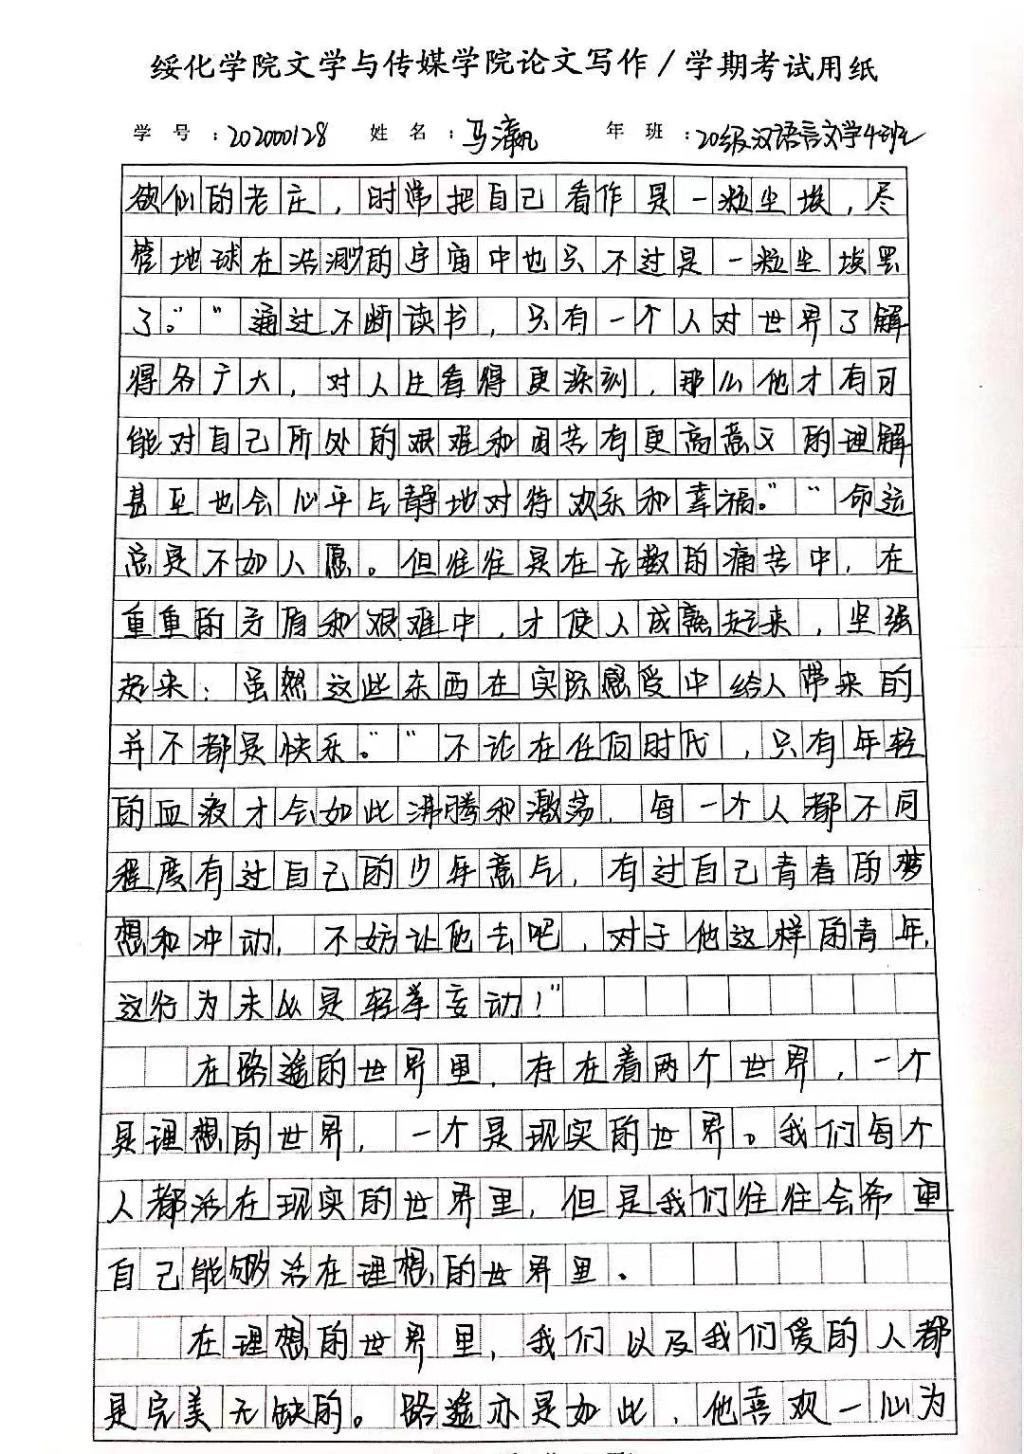 绥化学院文学与传媒学院论文写作/学期考试用纸
学号:202000128 姓名:马 年班:20级汉语言文学4班
欲仙的老庄，时常把自己看作是一粒尘埃，尽
管地球在浩渺的宇宙中也只不过是一粒尘埃罢
了。”“通过不断读书，只有一个人对世界了解
得各广大，对人生看得更深刻，那么他才有可
能对自己所处的艰难和困苦有更高意义的理解
甚至也会心平气静地对待欢乐和幸福。”“命运
总是不如人愿。但往往是在无数的痛苦中，在
重重的矛盾和艰难中，才使人成熟起来，坚强
起来；虽然这些东西在实际感受中给人带来的
并不都是快乐。”“不论在任何时代，只有年轻
的血液才会如此沸腾和激荡，每一个人都不同
程度有过自己的少年意气，有过自己青春的梦
想和冲动，不妨让他去吧，对于他这样的青年，
这行为未必是轻举妄动！”
在路遥的世界里，存在着两个世界，一个
是理想的世界，一个是现实的世界。我们每个
人都活在现实的世界里，但是我们往往会希望
自己能够活在理想的世界里。
在理想的世界里，我们以及我们爱的人都
是完美无缺的。路遥亦是如此，他喜欢一心为